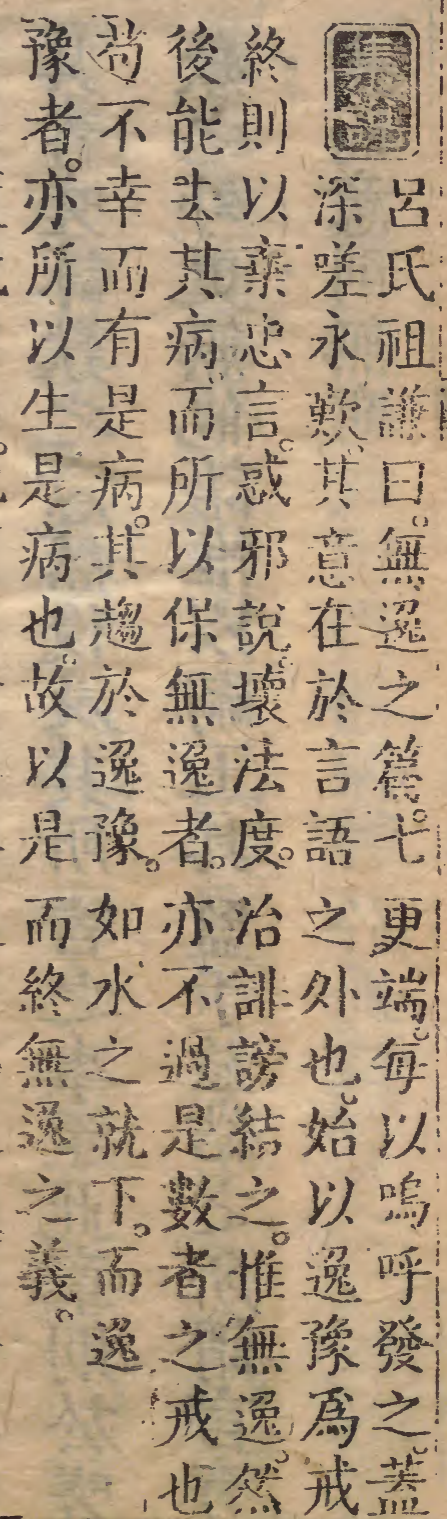 呂氏祖謙曰。無逸之篇。七更端。每以嗚呼發之。蓋
深嗟永歎。其意在於言語之外也。始以逸豫爲戒
終則以棄忠言。惑邪說。壞法度。治誹謗結之。惟無逸。然
後能去其病。而所以保無逸者。亦不過是數者之戒也
苟不幸而有是病。其趨於逸豫。如水之就下。而逸
豫者。亦所以生是病也。故以是而終無逸之義。